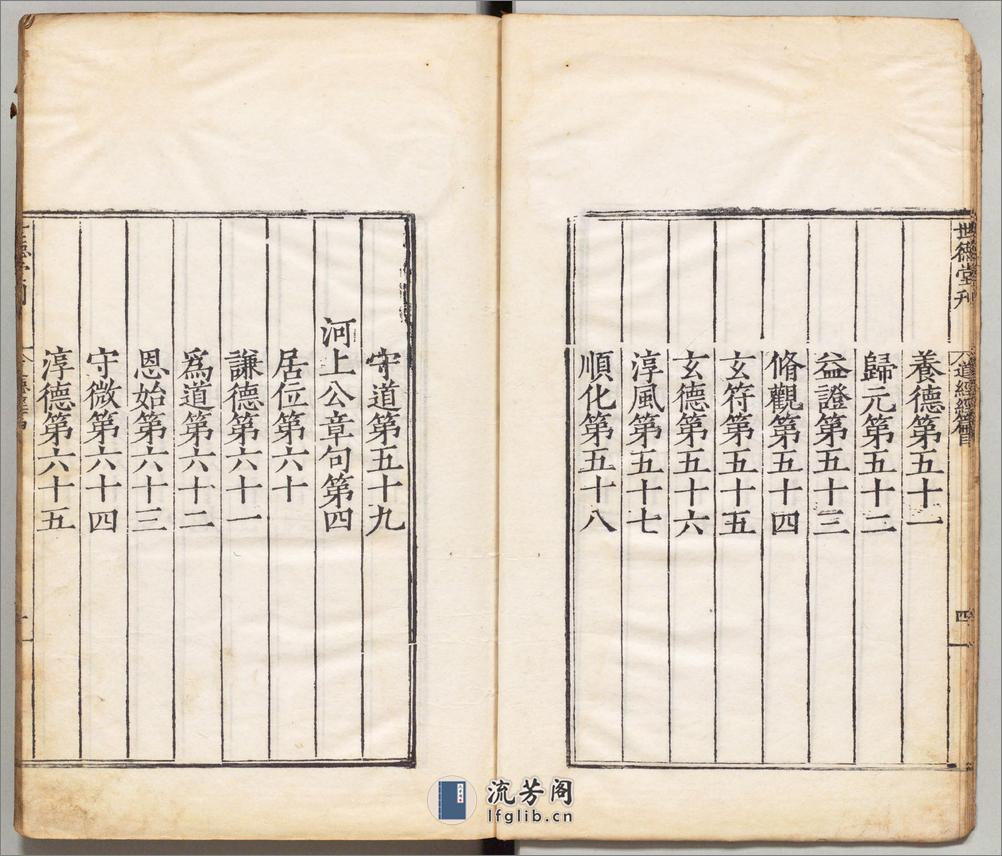 世德堂刊
道經經目
四
養德第五十一
歸元第五十二
益證第五十三
脩觀第五十四
玄符第五十五
玄德第五十六
淳風第五十七
順化第五十八
守道第五十九
河上公章句第四
居位第六十
謙德第六十一
爲道第六十二
恩始第六十三
守微第六十四
淳德第六十五
流芳阁
lfglib.cn